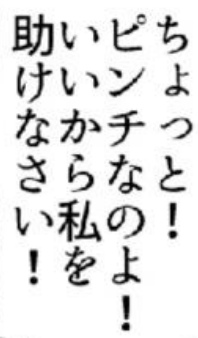 ちょっと！
ピンチなのよ！
いいから私を
助けなさい！